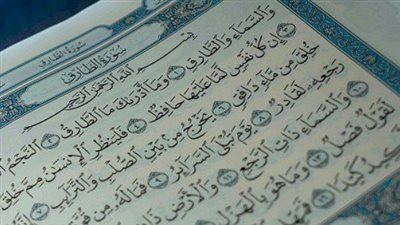 سُورَةُ الطَّارِقِ
سُورَةُ الطَّارِقِ
بِسْمِ اللَّهِ الرَّحْمَٰنِ الرَّحِيمِ
وَالسَّمَاءِ وَالطَّارِقِ ١ وَمَا أَدْرَىٰكَ مَا الطَّارِقُ ٢ النَّجْمُ
٣ إِن كُلُّ نَفْسٍ لَّمَّا عَلَيْهَا حَافِظٌ ٤ فَلْيَنظُرِ الْإِنسَٰنُ مِمَّ خُلِقَ
خُلِقَ مِن مَّاءٍ دَافِقٍ ٦ يَخْرُجُ مِن بَيْنِ الصُّلْبِ وَالتَّرَائِبِ ٧
رَجْعِهِ لَقَادِرٌ ٨ يَوْمَ تُبْلَى السَّرَائِرُ ٩ فَمَا لَهُ مِن
١٠ وَالسَّمَاءِ ذَاتِ الرَّجْعِ ١١ وَالْأَرْضِ ذَاتِ
لَقَوْلٌ فَصْلٌ ١٣ وَمَا هُوَ بِالْهَزْلِ ١٤
كَيْدًا